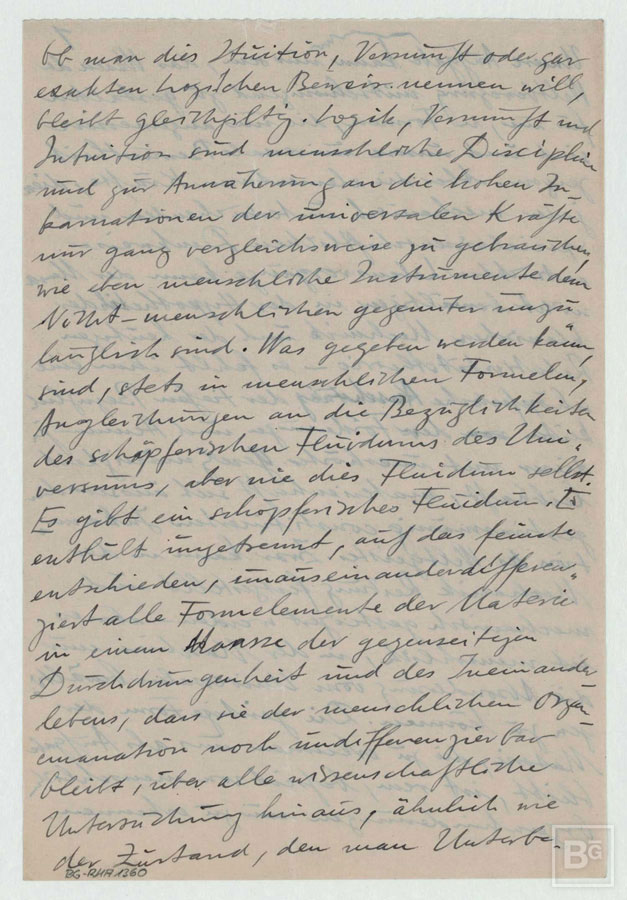 Ob man dies Ituition, Vernunft oder gar
exakten logischen Beweis nennen will,
bleibt gleichgiltig. Logik, Vernunft und
Intuition sind menschliche Disciplinen
und zur Annäherung an die hohen In-
karnationen der universalen Kräfte
nur ganz vergleichsweise zu gebrauchen,
wie eben menschliche Instrumente dem
Nicht-menschlichen gegenüber unzu
länglich sind. Was gegeben werden kann,
sind, stets in menschlichen Formeln,
Angleichungen an die Bezüglichkeiten
des schöpferischen Fluidums des Uni-
versums, aber nie dies Fluidum selbst.
Es gibt ein schöpferisches Fluidum. Es
enthält ungetrennt, auf das feinste
entschieden, unauseinanderdifferen-
ziert alle Formelemente der Materie
in einem Maasse der gegenseitigen
Durchdrungenheit und des Ineinander
lebens, dass sie der menschlichen Organ-
emanation noch undifferenzierbar
bleibt, über alle wissenschaftliche
Untersuchung hinaus, ähnlich wie
der Zustand, den man Unterbe-
BG-RHA 1360
BG